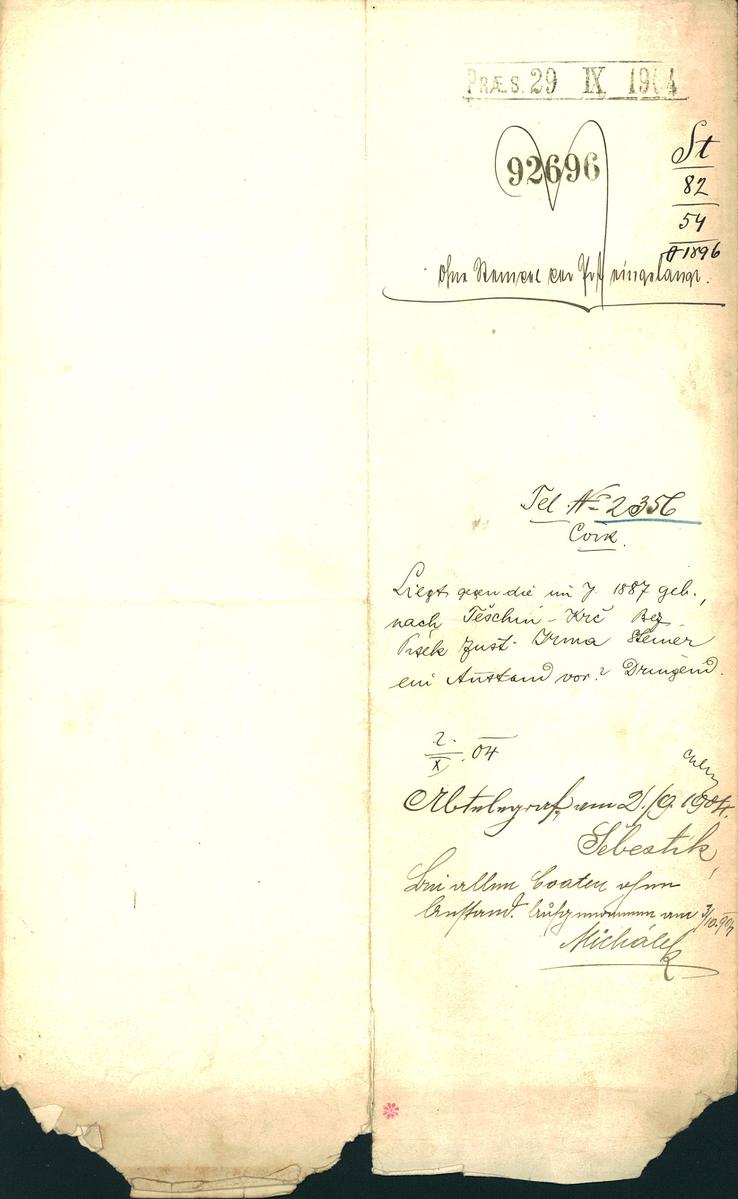 PRÆS. 29 IX 1904
92696
St
82
54
1896
Ohne Stempel per Post eingelangt.
Tel № 2356
Liegt gegen die im J. 1887 geb.,
nach Těschin-Krč Bez.
Pisek zust. Irma Steiner
ein Anstand vor? Dringend.
2.
X. 04
Abtelegraf. am 2./9. 1904.
Šebestik
Bei allen ohne
Anstand. Aufgenommen am 3/10.
Michálek